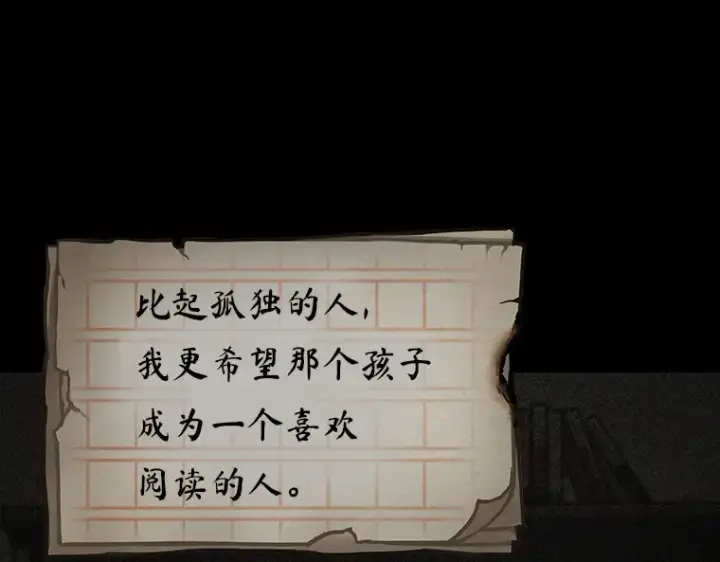 比起孤独的人,
我更希望那个孩子
成为一个喜欢
阅读的人。